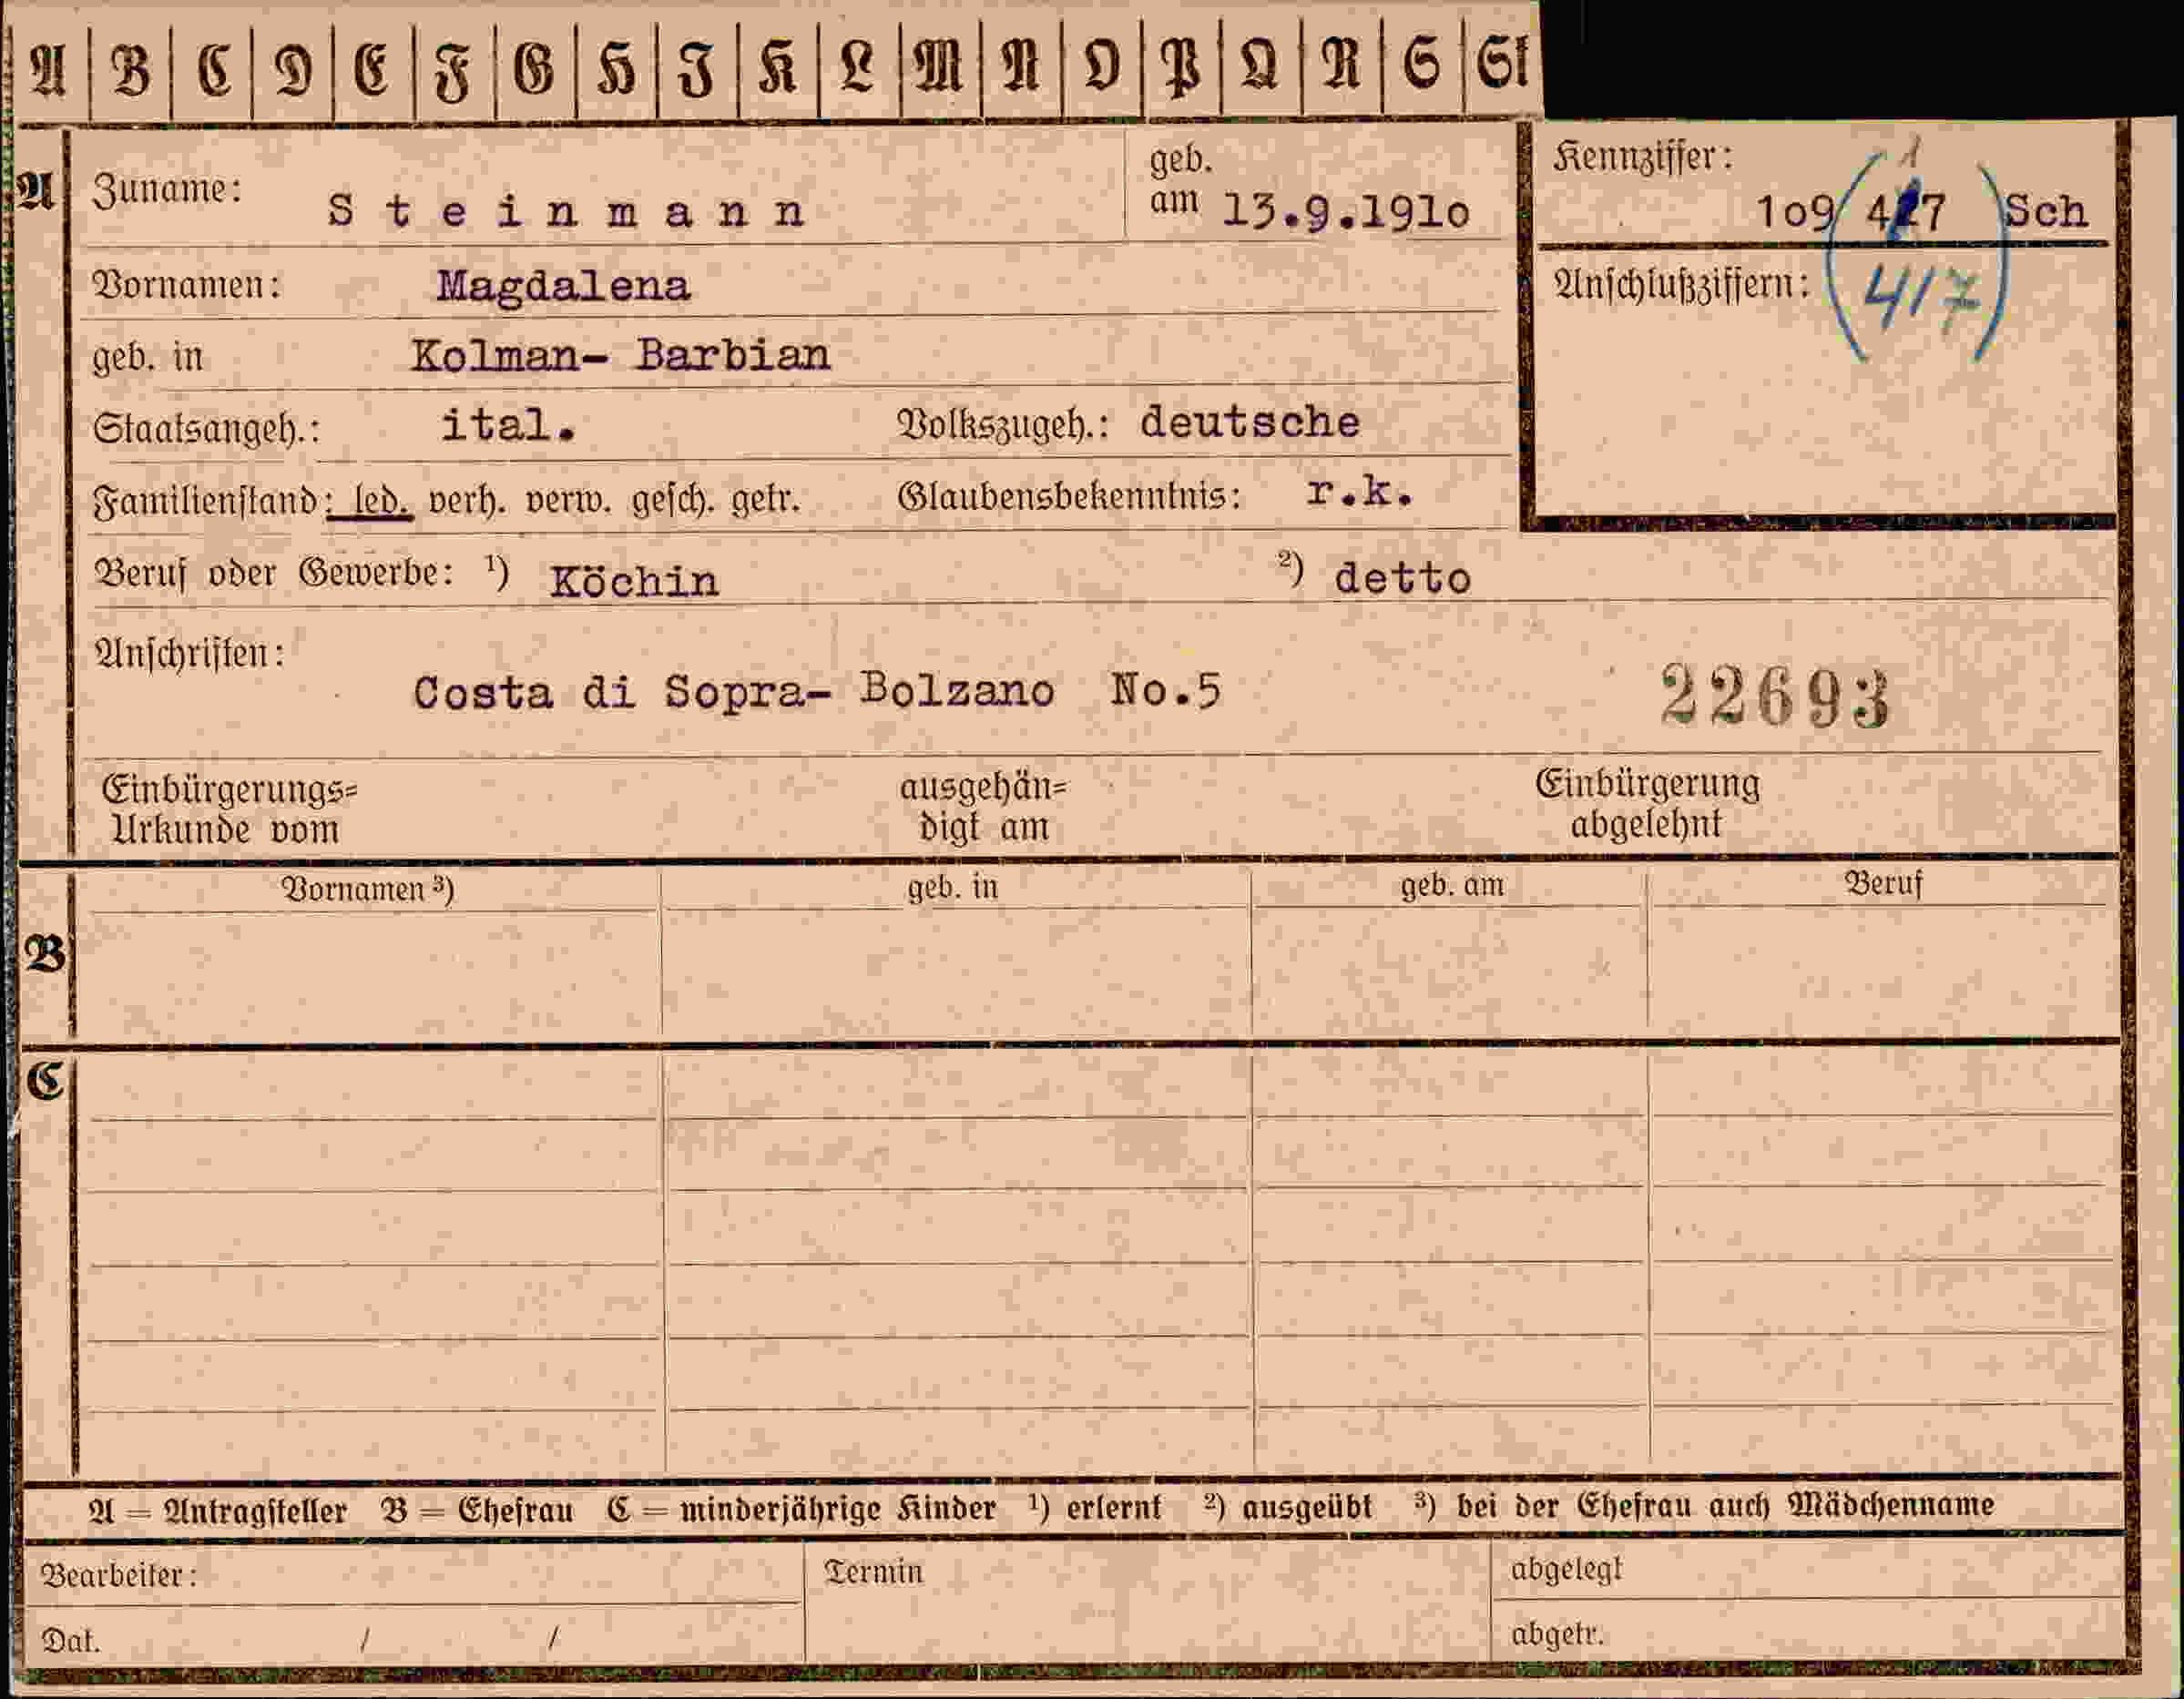 A B C D E F G H I K L M N O P Q R S St
A
Zuname: Steinmann geb. am 13.9.1910
Kennziffer: 109/417 Sch
Vornamen: Magdalena
Anschlußziffern: (417)
geb. in Kolman- Barbian
Staatsangeh.: ital. Volkszugeh.: deutsche
Familienstand: led. verh. verw. gesch. getr. Glaubensbekenntnis: r.k.
Beruf oder Gewerbe: ¹) Köchin ²) detto
Anschriften:
Costa di Sopra- Bolzano No.5 22693
Einbürgerungs= ausgehän= Einbürgerung
Urkunde vom digt am abgelehnt
Vornamen ³) geb. in geb. am Beruf
B
C
A = Antragsteller B = Ehefrau C = minderjährige Kinder ¹) erlernt ²) ausgeübt ³) bei der Ehefrau auch Mädchenname
Bearbeiter: Termin abgelegt
Dat. / / abgetr.